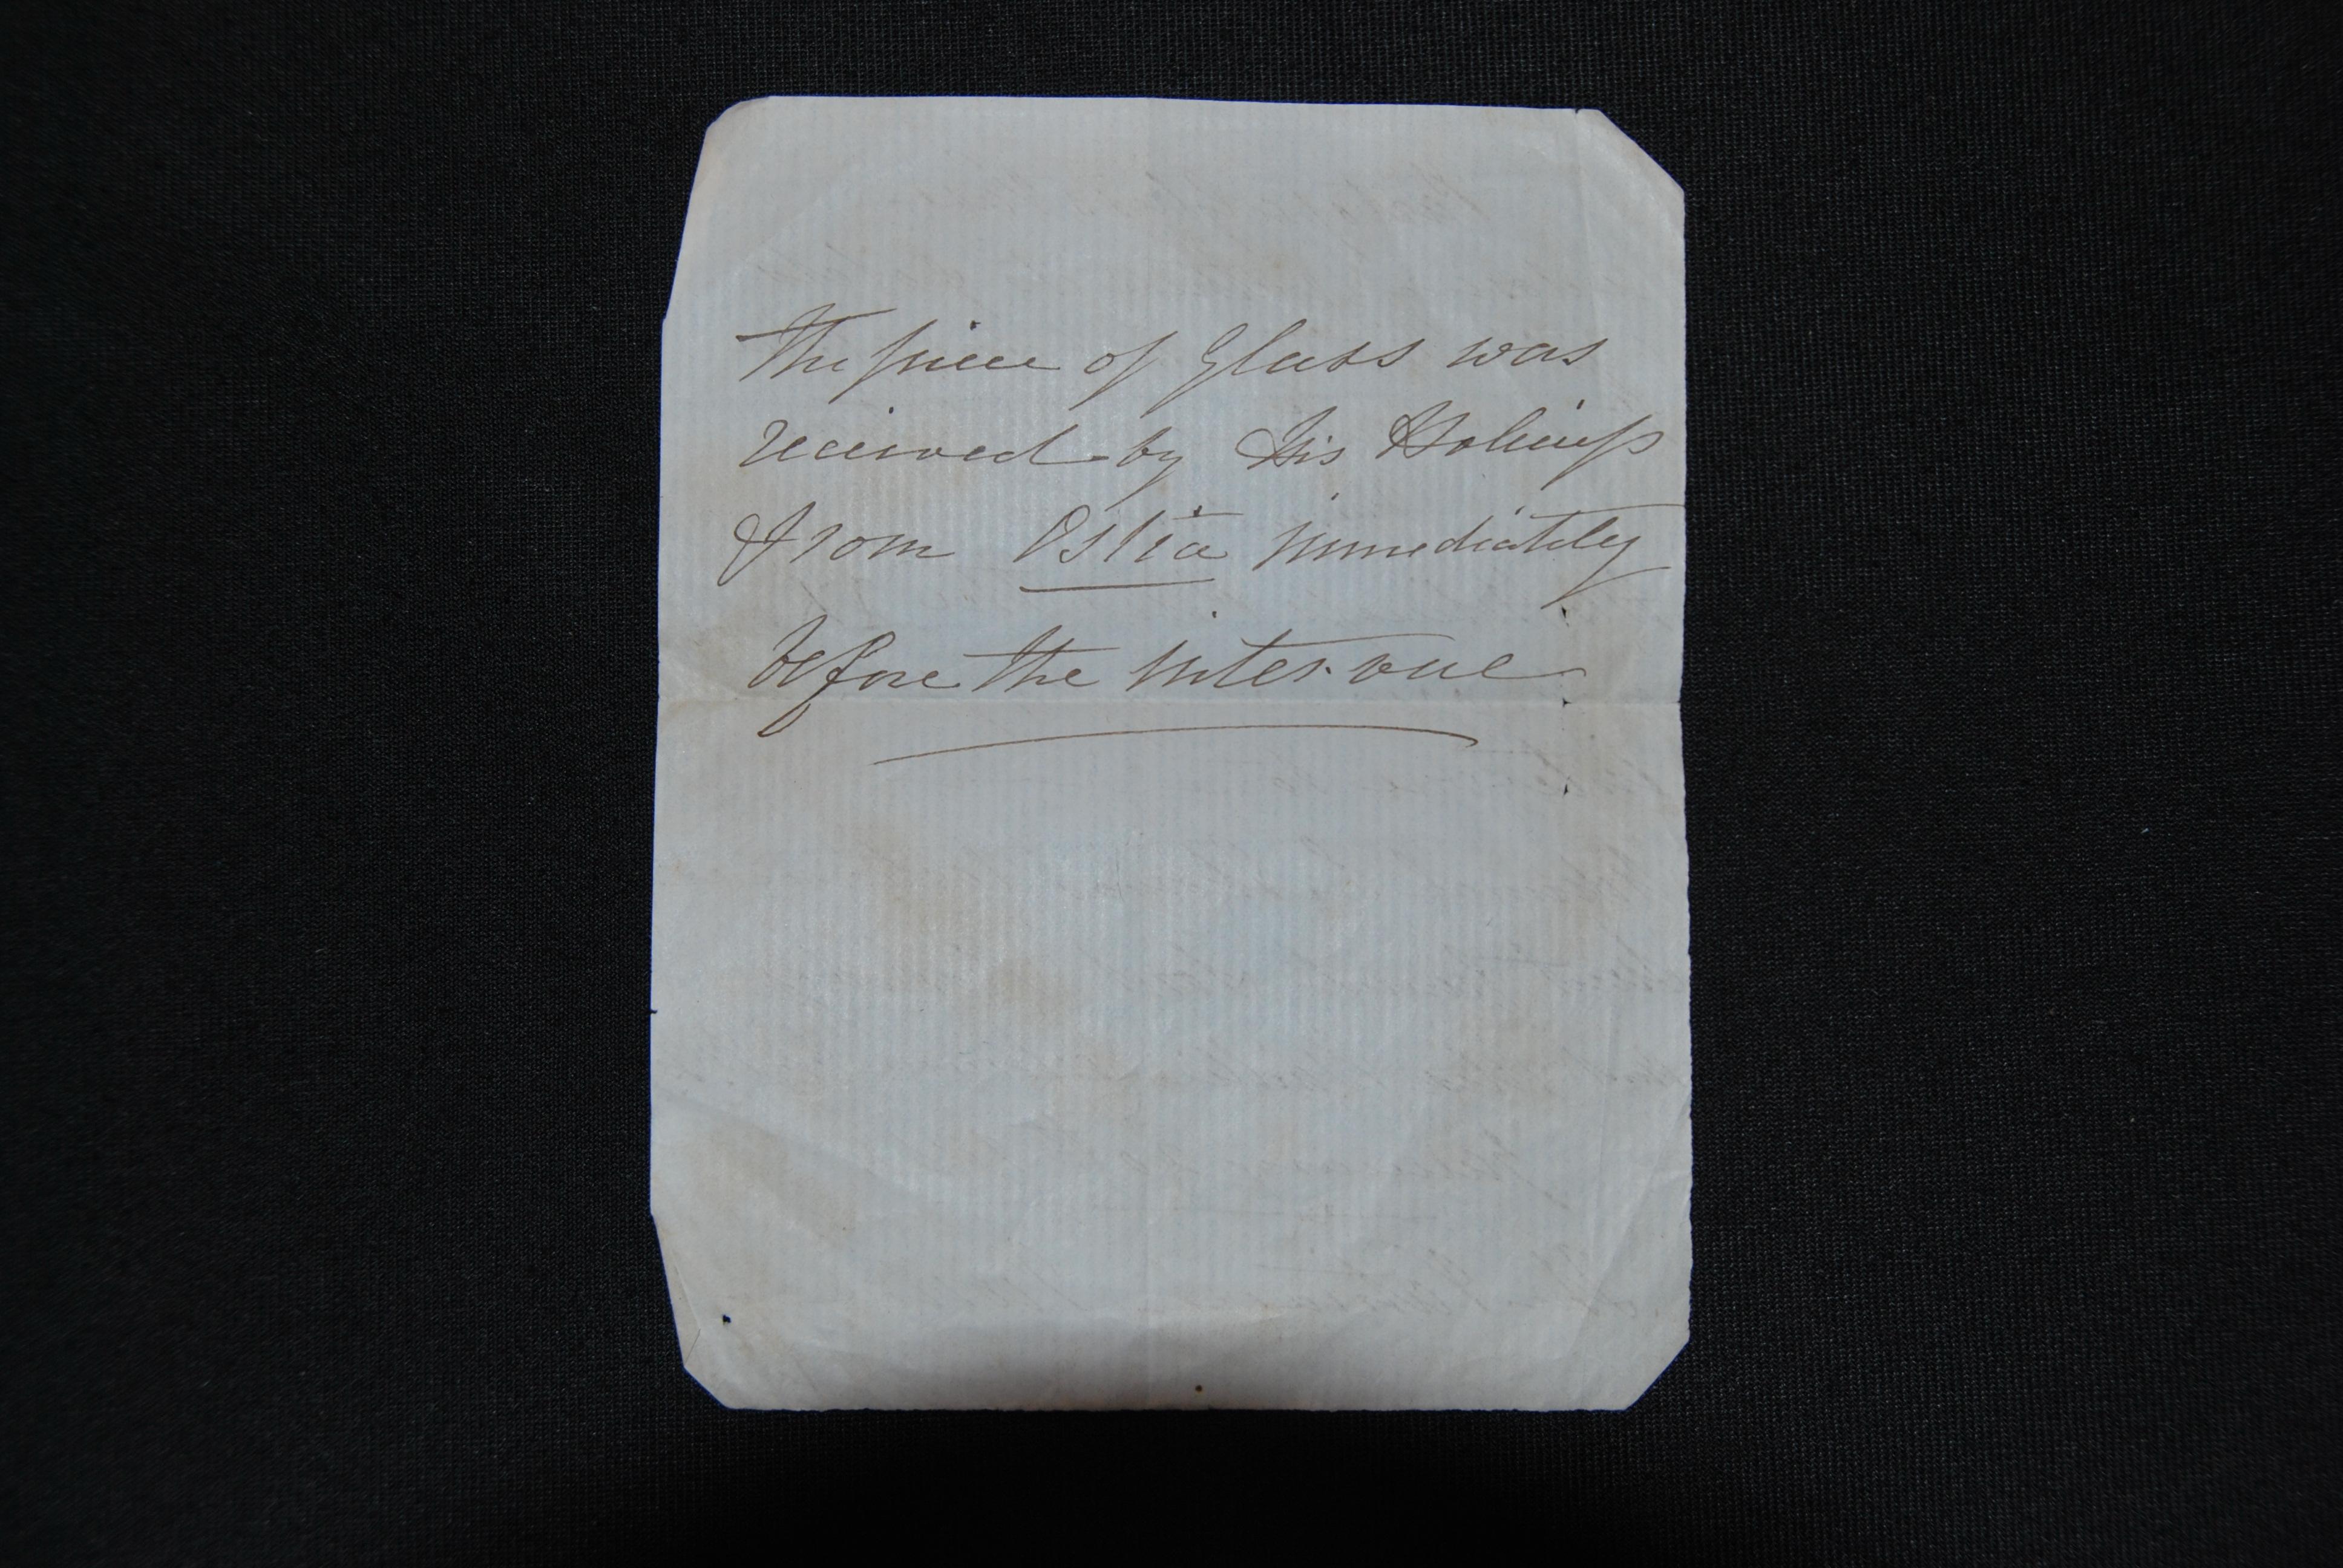 The piece of Glass was
received by His Holiness
from Ostia immediately
before the inter.vue